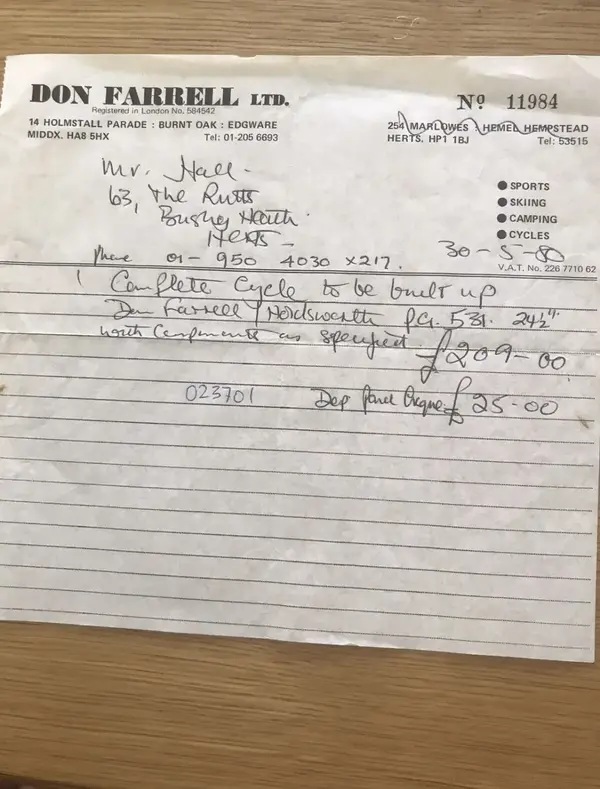 DON FARRELL LTD.
Registered in London No. 584542
14 HOLMSTALL PARADE : BURNT OAK : EDGWARE
MIDDX. HA8 5HX Tel: 01-205 6693
Nº 11984
254 MARLOWES HEMEL HEMPSTEAD
HERTS. HP1 1BJ Tel: 53515
Mr. Hall.
63, The Rutts
Bushey Heath.
Herts
Phone 01-950 4030 X217.
SPORTS
SKIING
CAMPING
CYCLES
30-5-80
V.A.T. No. 226 7710 62
1 Complete Cycle to be built up
Don Farrell / Holdsworth 531. 24½"
with Components as specified. £209-00
023701 Dep Cheque £25-00